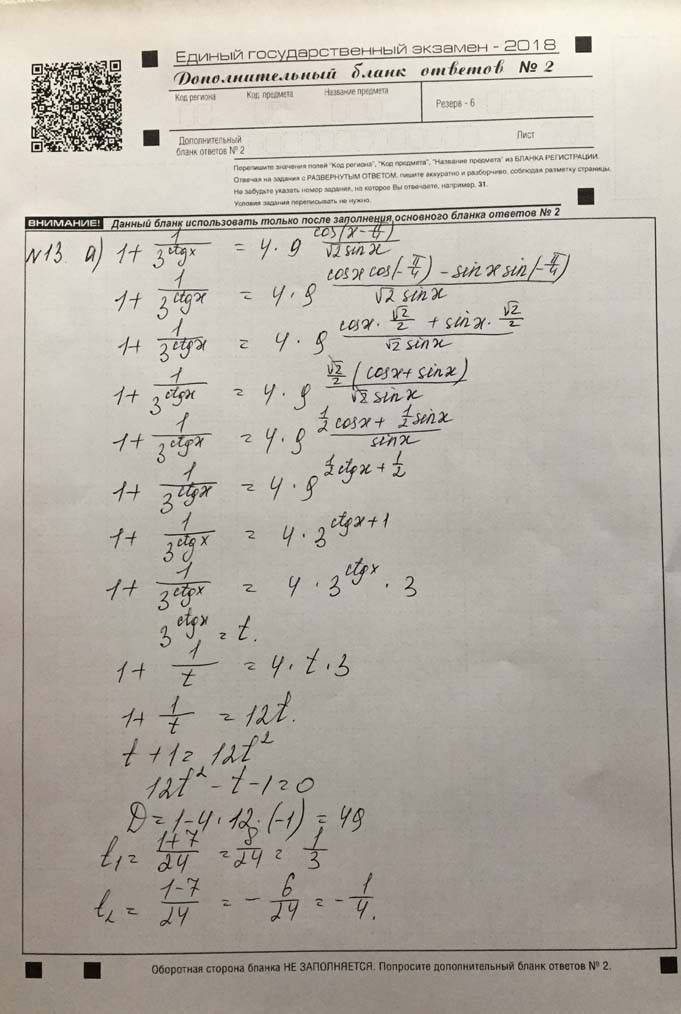 Единый государственный экзамен - 2018
Дополнительный бланк ответов № 2
Код региона Код предмета Название предмета
Резерв - 6
Дополнительный
бланк ответов № 2
Лист
Перепишите значения полей "Код региона", "Код предмета", "Название предмета" из БЛАНКА РЕГИСТРАЦИИ.
Отвечая на задания с РАЗВЕРНУТЫМ ОТВЕТОМ, пишите аккуратно и разборчиво, соблюдая разметку страницы.
Не забудьте указать номер задания, на которое Вы отвечаете, например, 31.
Условия задания переписывать не нужно.
ВНИМАНИЕ! Данный бланк использовать только после заполнения основного бланка ответов № 2
N13. а) 1 + 1/3^(ctgx) = 4 · 9^(cos(x - π/4)/(√2 sinx))
1 + 1/3^(ctgx) = 4 · 9^((cosx cos(-π/4) - sinx sin(-π/4))/(√2 sinx))
1 + 1/3^(ctgx) = 4 · 9^((cosx · √2/2 + sinx · √2/2)/(√2 sinx))
1 + 1/3^(ctgx) = 4 · 9^(√2/2 (cosx + sinx)/(√2 sinx))
1 + 1/3^(ctgx) = 4 · 9^((1/2 cosx + 1/2 sinx)/sinx)
1 + 1/3^(ctgx) = 4 · 9^(1/2 ctgx + 1/2)
1 + 1/3^(ctgx) = 4 · 3^(ctgx + 1)
1 + 1/3^(ctgx) = 4 · 3^(ctgx) · 3
3^(ctgx) = t.
1 + 1/t = 4 · t · 3
1 + 1/t = 12t.
t + 1 = 12t²
12t² - t - 1 = 0
D = 1 - 4 · 12 · (-1) = 49
t₁ = (1+7)/24 = 8/24 = 1/3
t₂ = (1-7)/24 = - 6/24 = - 1/4.
Оборотная сторона бланка НЕ ЗАПОЛНЯЕТСЯ. Попросите дополнительный бланк ответов № 2.